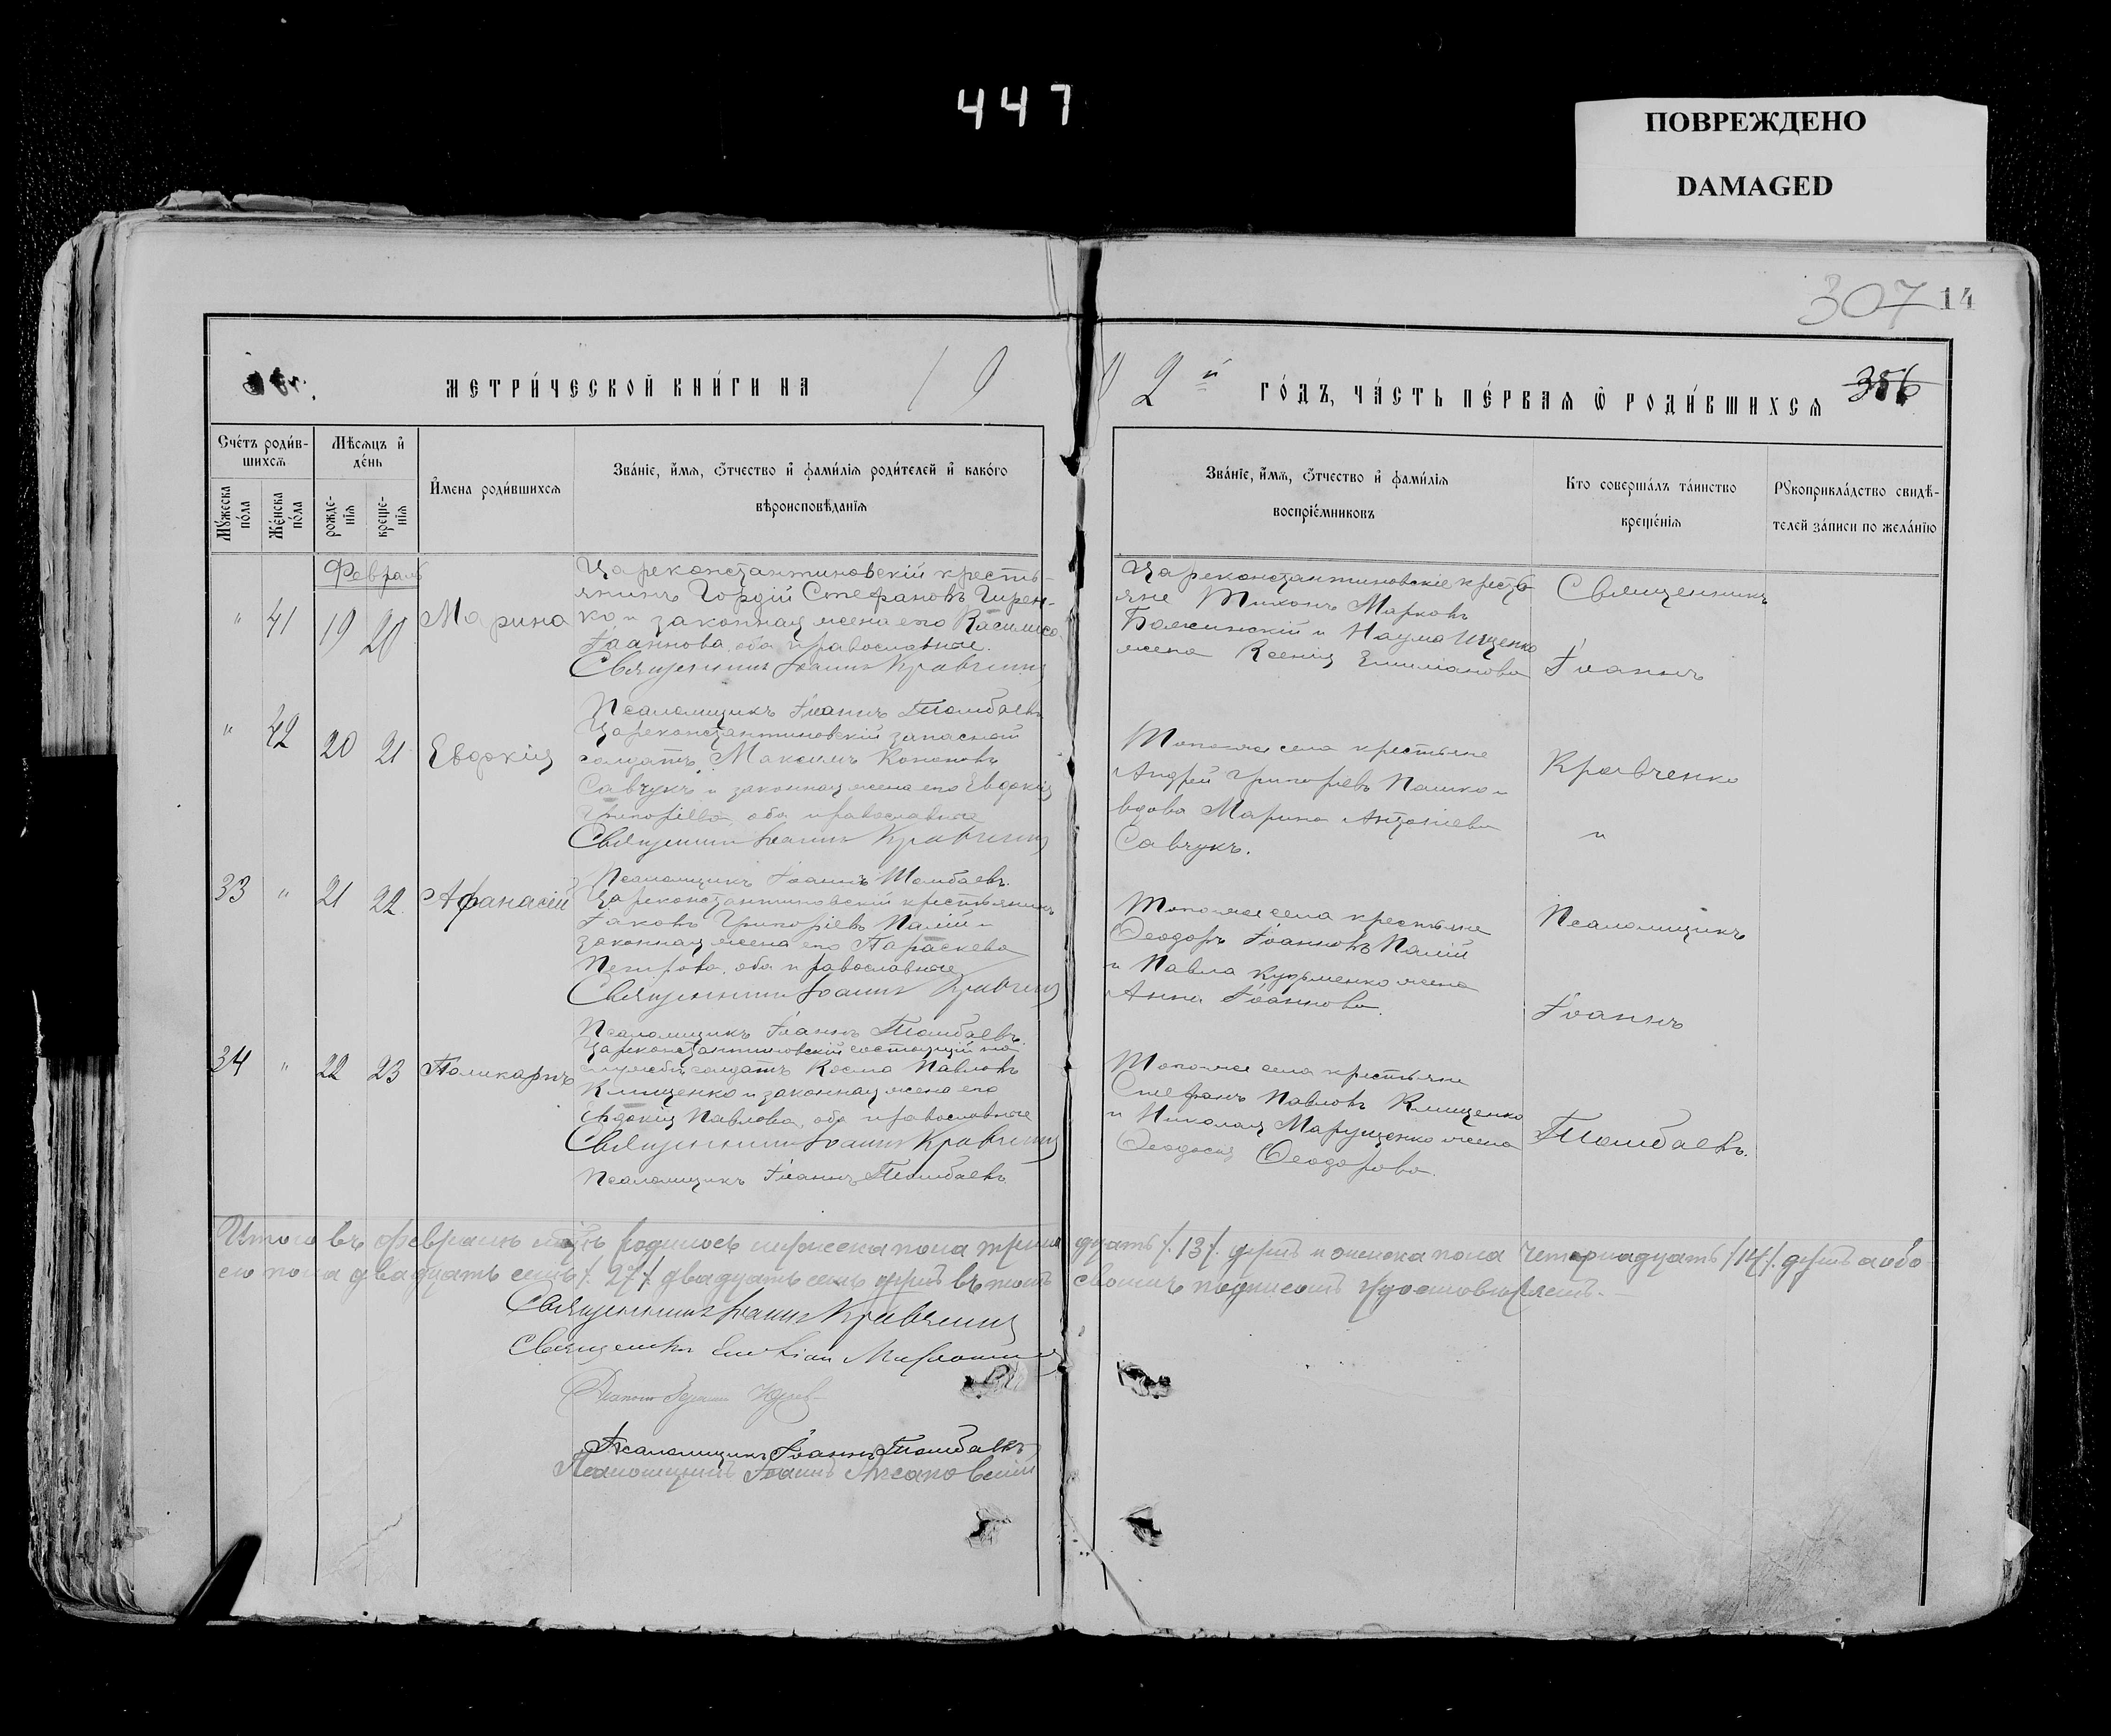 447
ПОВРЕЖДЕНО
DAMAGED
307 14
МЕТРИЧЕСКОЙ КНИГИ НА 19
02й ГОДЪ, ЧАСТЬ ПЕРВАЯ Ѿ РОДИВШИХСЯ 356
Счетъ родив-
шихся
Мѣсяцъ и
день
Мужеска
пола
Женска
пола
рожде-
нія
креще-
нія
Имена родившихся
Званіе, имя, отчество и фамилія родителей и какого
вѣроисповѣданія
Званіе, имя, отчество и фамилія
воспріемниковъ
Кто совершалъ таинство
крещенія
Рукоприкладство свидѣ-
телей записи по желанію
Февраль
" 41 19 20 Марина
Цареконстантиновскій кресть-
янинъ Гордій Стефановъ Гирен-
ко и законная жена его Василиса
Іоаннова, оба православные.
Священникъ Іоаннъ Кравченко
Цареконстантиновскіе кресть
яне Тихонъ Марковъ
и Наума Ищенко
жена Ксенія Емиліанова
Псаломщикъ Іоаннъ Толмбаевъ
" 42 20 21 Евдокія
Цареконстантиновскій запасной
солдатъ Максимъ Кононовъ
Савчукъ и законная жена его Евдокія
Григоріева, оба православные
Священникъ Іоаннъ Кравченко
Того же села крестьяне
Андрей Григорьевъ Пашко и
вдова Марина Антоніева
Савчукъ.
Псаломщикъ Іоаннъ Толмбаевъ.
33 " 21 22 Афанасій
Цареконстантиновскій крестьянинъ
Іаковъ Григоріевъ Палій и
законная жена его Параскева
Петрова, оба православные
Священникъ Іоаннъ Кравченко
Того же села крестьяне
Ѳеодоръ Іоанновъ Палій
и Павла Кузьменко жена
Анна Іоаннова.
Псаломщикъ Іоаннъ Толмбаевъ.
34 " 22 23 Поликарпъ
Цареконстантиновскій состоящій на
службѣ солдатъ Косма Павловъ
Клищенко и законная жена его
Евдокія Павлова, оба православные
Священникъ Іоаннъ Кравченко
Псаломщикъ Іоаннъ Толмбаевъ
Того же села крестьяне
Стефанъ Павловъ Клищенко
и Николая Марущенко жена
Ѳеодосія Ѳеодорова.
Священникъ
Іоаннъ
Кравченко
"
Псаломщикъ
Іоаннъ
Толмбаевъ.
Итого въ февралѣ мѣсяцѣ родилось мужеска пола тринадцать /13/ душъ и женска пола четырнадцать /14/ душъ а обо
его пола двадцать семь /27/ двадцать семь душъ въ томъ своимъ подписомъ удостовѣряемъ.
Священникъ Іоаннъ Кравченко
Священникъ
Діаконъ
Псаломщикъ Іоаннъ Толмбаевъ
Псаломщикъ Іоаннъ